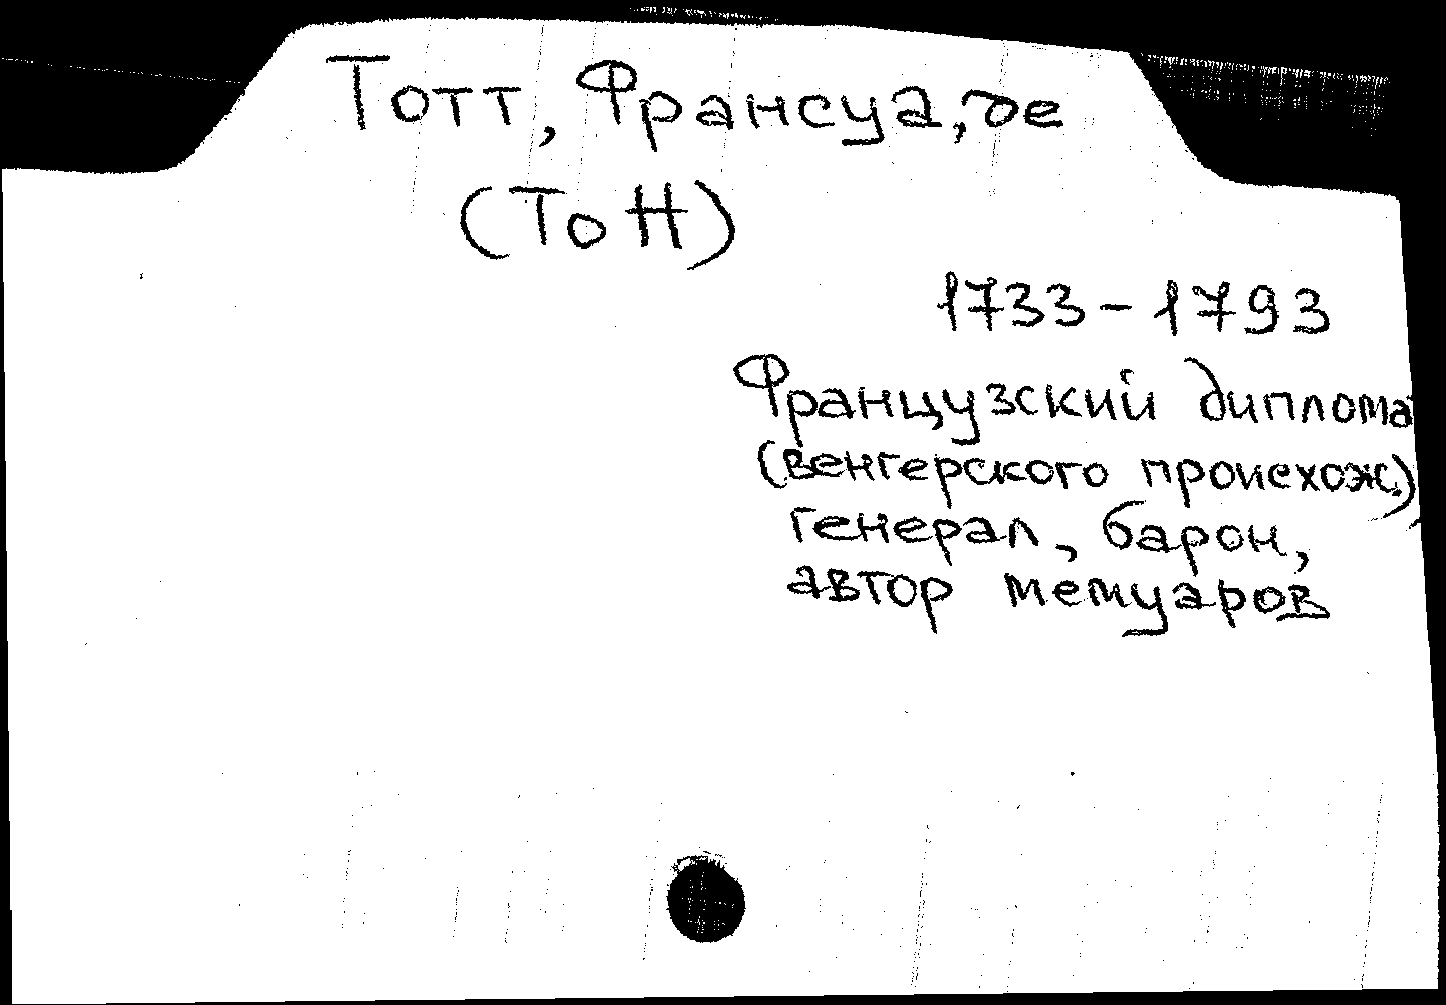 Тотт, Франсуа, де
(Tott)
1733-1793
Французский диплома
(венгерского происхож.),
генерал, барон,
автор мемуаров